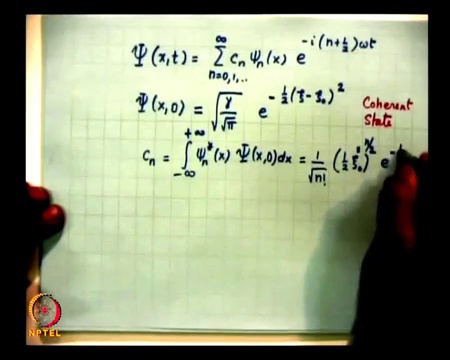 Ψ(x,t) = ∑_{n=0,1,..}^{∞} c_n ψ_n(x) e^{-i(n+½)ωt}
Ψ(x,0) = √(γ/√π) e^{-½(ξ-ξ₀)²}
Coherent
State
c_n = ∫_{-∞}^{+∞} ψ_n*(x) Ψ(x,0)dx = 1/√n! (½ ξ₀²)^{n/2} e^{-
NPTEL